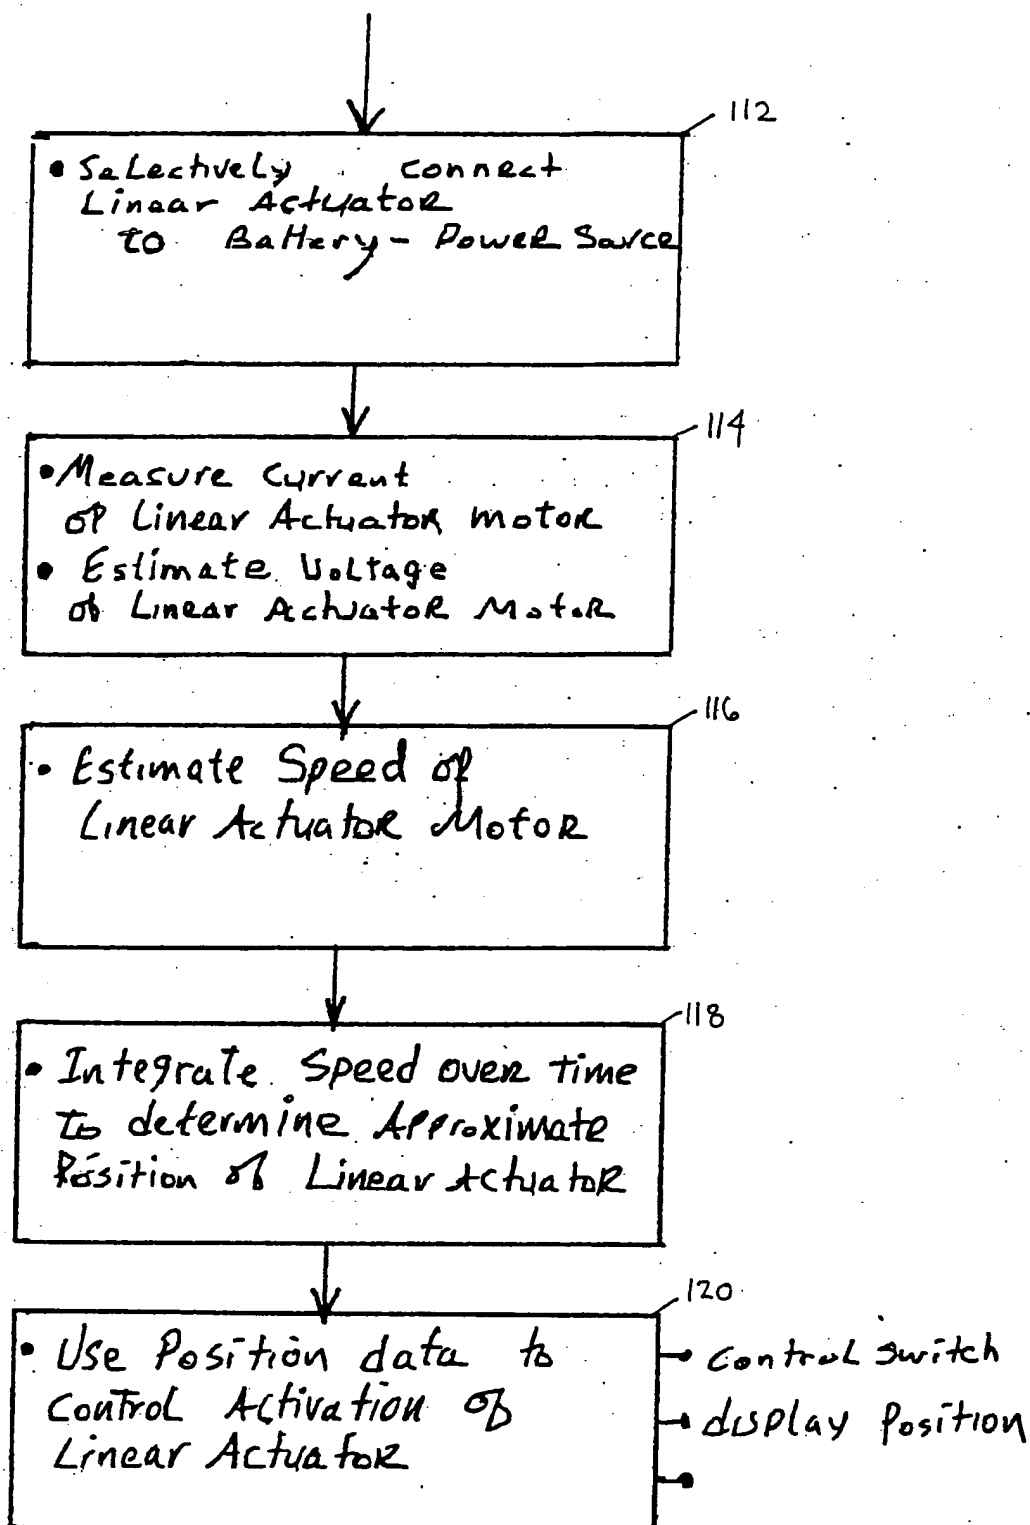 112
• Selectively connect
Linear Actuator
to Battery - Power Source
114
• Measure Current
of Linear Actuator motor
• Estimate Voltage
of Linear Actuator Motor
116
• Estimate Speed of
Linear Actuator Motor
118
• Integrate Speed over time
to determine Approximate
Position of Linear Actuator
120
• Use Position data to
Control Activation of
Linear Actuator
control switch
display Position